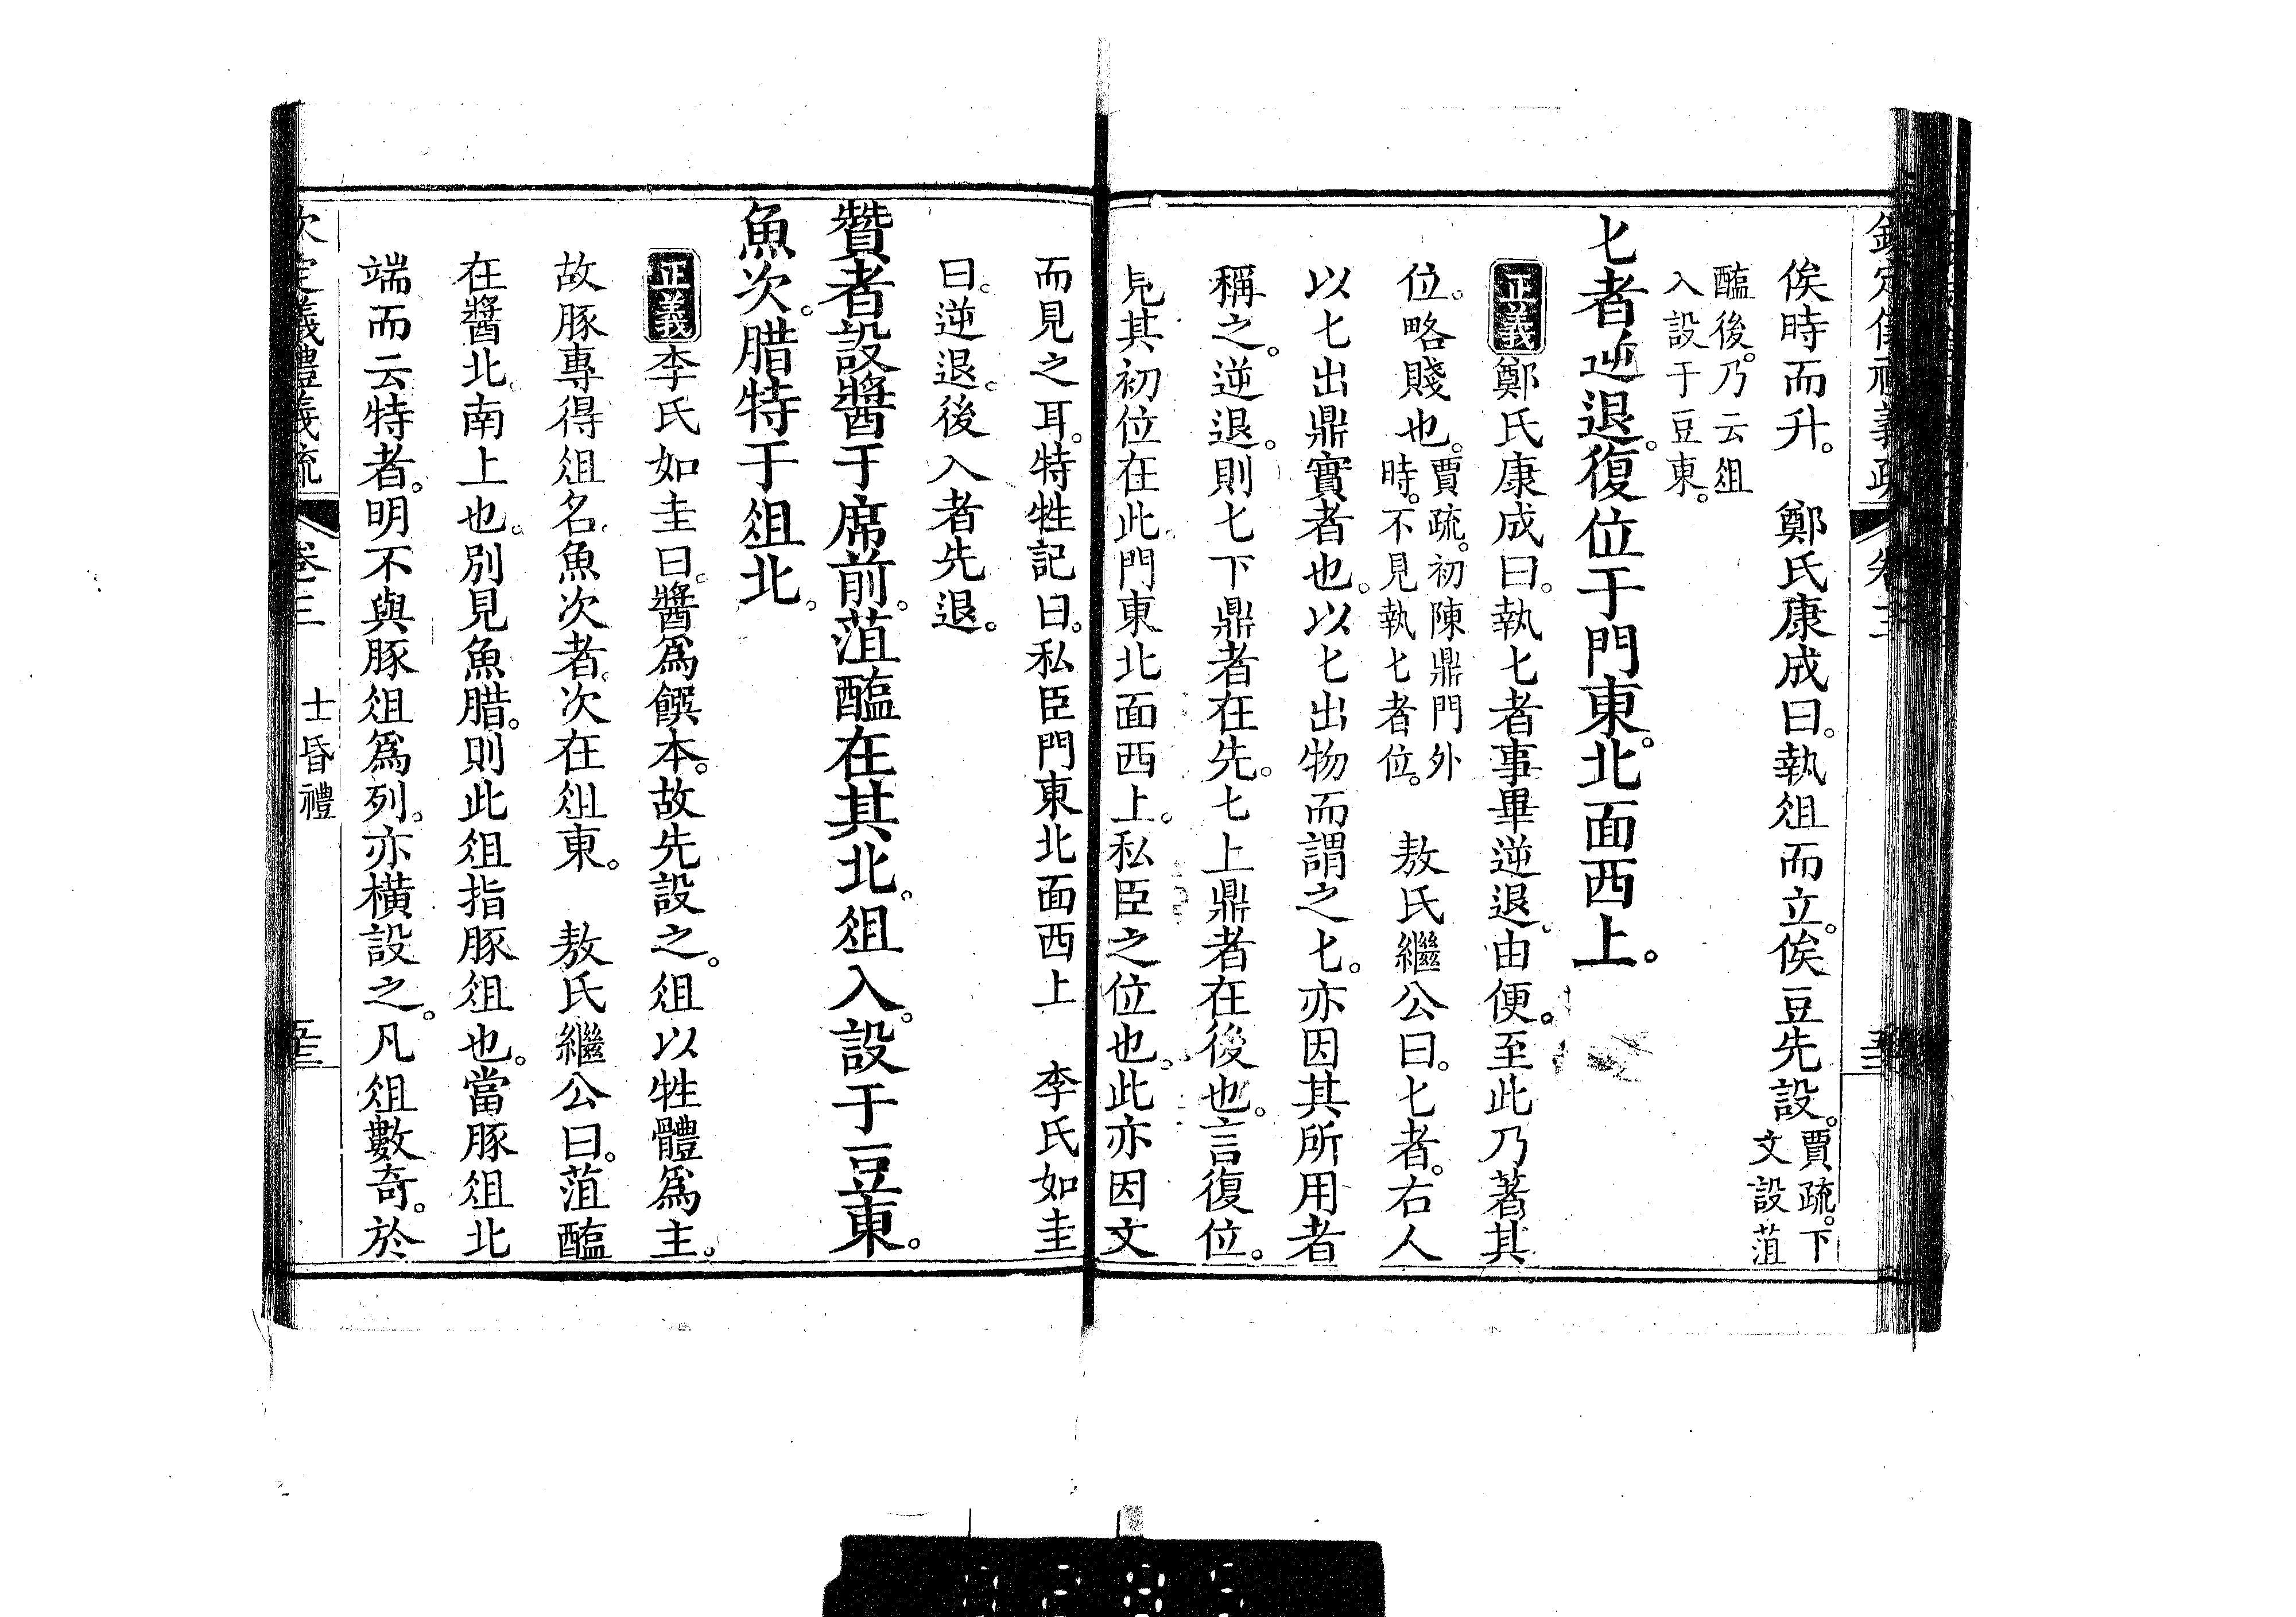 俟時而升。　鄭氏康成曰。執俎而立。俟豆先設。賈疏。下文設菹
醢後。乃云俎入設于豆東。
匕者逆退。復位于門東。北面西上。
正義鄭氏康成曰。執匕者事畢逆退。由便。至此乃著其
位。略賤也。賈疏。初陳鼎門外時。不見執匕者位。　敖氏繼公曰。匕者。右人
以匕出鼎實者也。以匕出物而謂之匕。亦因其所用者
稱之。逆退。則匕下鼎者在先。匕上鼎者在後也。言復位。
見其初位在此。門東北面西上。私臣之位也。此亦因文
而見之耳。特牲記曰。私臣門東北面西上　李氏如圭
曰。逆退。後入者先退。
贊者設醬于席前。菹醢在其北。俎入。設于豆東。
魚次。腊特于俎北。
正義李氏如圭曰。醬爲饌本。故先設之。俎以牲體爲主。
故豚專得俎名。魚次者。次在俎東。　敖氏繼公曰。菹醢
在醬北。南上也。別見魚腊。則此俎指豚俎也。當豚俎北
端而云特者。明不與豚俎爲列。亦橫設之。凡俎數奇。於
欽定儀禮義疏　卷三　士昏禮